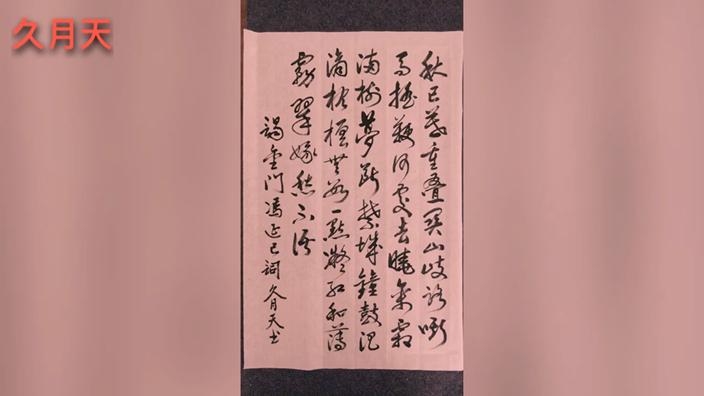 久月天
秋已暮重叠关山歧路嘶
马摇鞭何处去曉禽霜
满树夢断禁城鐘鼓泪
滴枕檀無数一點凝红和薄
雾翠娥愁不语
谒金门冯延巳词 久月天书